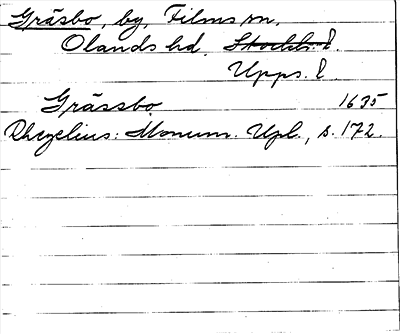 Gräsbo, by, Films sn,
Olands hd. Stockh. l.
Upps. l.
Grässbo 1635
Rhezelius: Monum. Upl., s. 172.